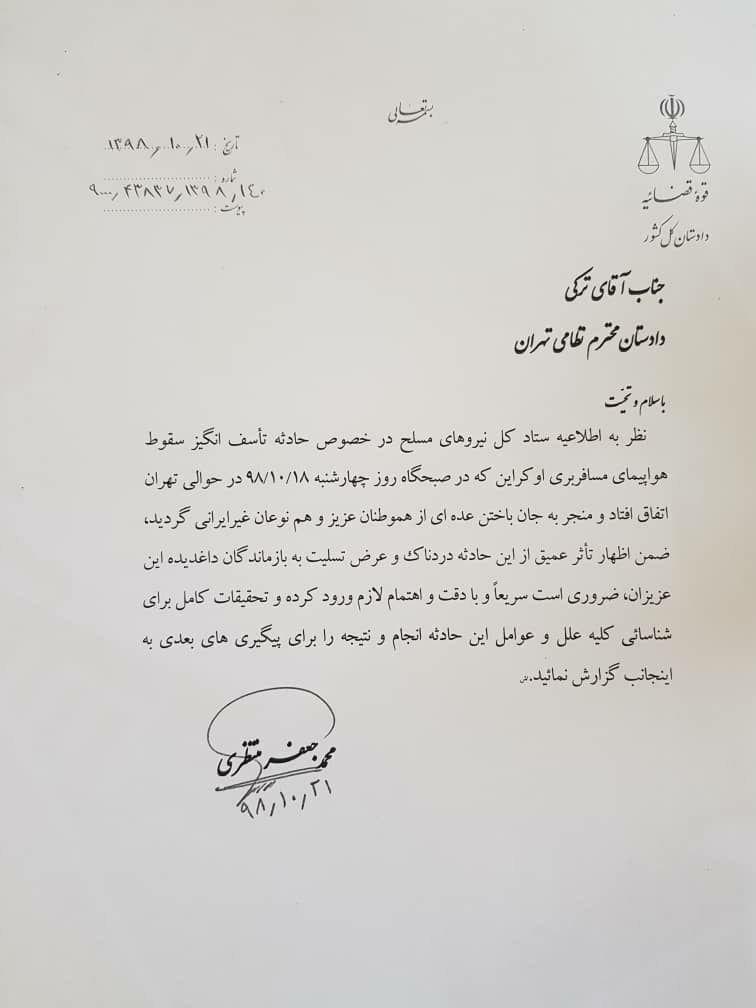 بسمه تعالی
قوهٔ قضائیه
دادستان کل کشور
تاریخ : ۱۳۹۸/۱۰/۲۱
شماره : ۹۰۰۰/۴۳۸۳۷/۱۳۹۸/۱۴۰
پیوست :
جناب آقای ترکی
دادستان محترم نظامی تهران
با سلام و تحیّت
نظر به اطلاعیه ستاد کل نیروهای مسلح در خصوص حادثه تأسف انگیز سقوط
هواپیمای مسافربری اوکراین که در صبحگاه روز چهارشنبه ۹۸/۱۰/۱۸ در حوالی تهران
اتفاق افتاد و منجر به جان باختن عده ای از هموطنان عزیز و هم نوعان غیرایرانی گردید،
ضمن اظهار تأثر عمیق از این حادثه دردناک و عرض تسلیت به بازماندگان داغدیده این
عزیزان، ضروری است سریعاً و با دقت و اهتمام لازم ورود کرده و تحقیقات کامل برای
شناسائی کلیه علل و عوامل این حادثه انجام و نتیجه را برای پیگیری های بعدی به
اینجانب گزارش نمائید.ش
محمدجعفر منتظری
۹۸/۱۰/۲۱